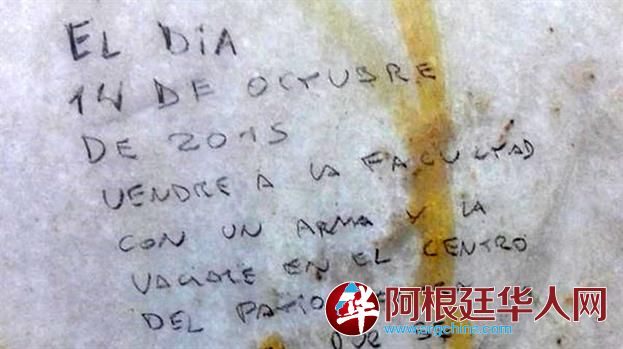 EL DIA
14 DE OCTUBRE
DE 2015
VENDRE A LA FACULTAD
CON UN ARMA Y LA
VACIARE EN EL CENTRO
DEL PATIO
QUE SE
阿根廷华人网
www.argchina.com